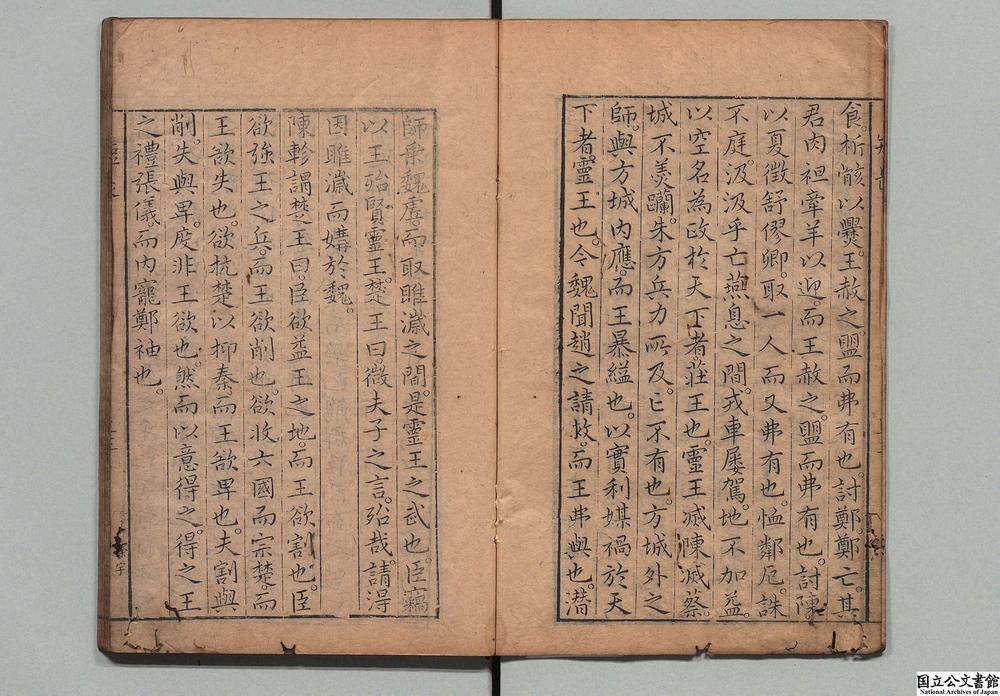 食析骸以爨。王赦之。盟而弗有也。討鄭。鄭亡。其
君肉袒牽羊以迎。而王赦之。盟而弗有也。討陳。
以夏徵舒僇卿。取一人而又弗有也。恤鄰厄。誅
不庭。汲汲乎亡燕息之間。戎車屢駕。地不加益。
以空名為政於天下者。莊王也。靈王滅陳滅蔡。
城不羹躪朱方。兵力所及。亡不有也。方城外之
師。與方城內應。而王暴縊也。以實利媒禍於天
下者。靈王也。今魏聞趙之請救。而王弗與也。潛
師乘魏虛。而取雎濊之間。是靈王之武也。臣竊
以王殆賢靈王。楚王曰。微夫子之言。殆哉。請得
因雎濊而媾於魏。
陳軫謂楚王曰。臣欲益王之地。而王欲割也。臣
欲強王之兵。而王欲削也。欲收六國而宗楚。而
王欲失也。欲抗楚以抑秦。而王欲卑也。夫割與
削。失與卑。度非王欲也。然而以意得之。得之王
之禮張儀。而內寵鄭袖也。
国立公文書館
National Archives of Japan